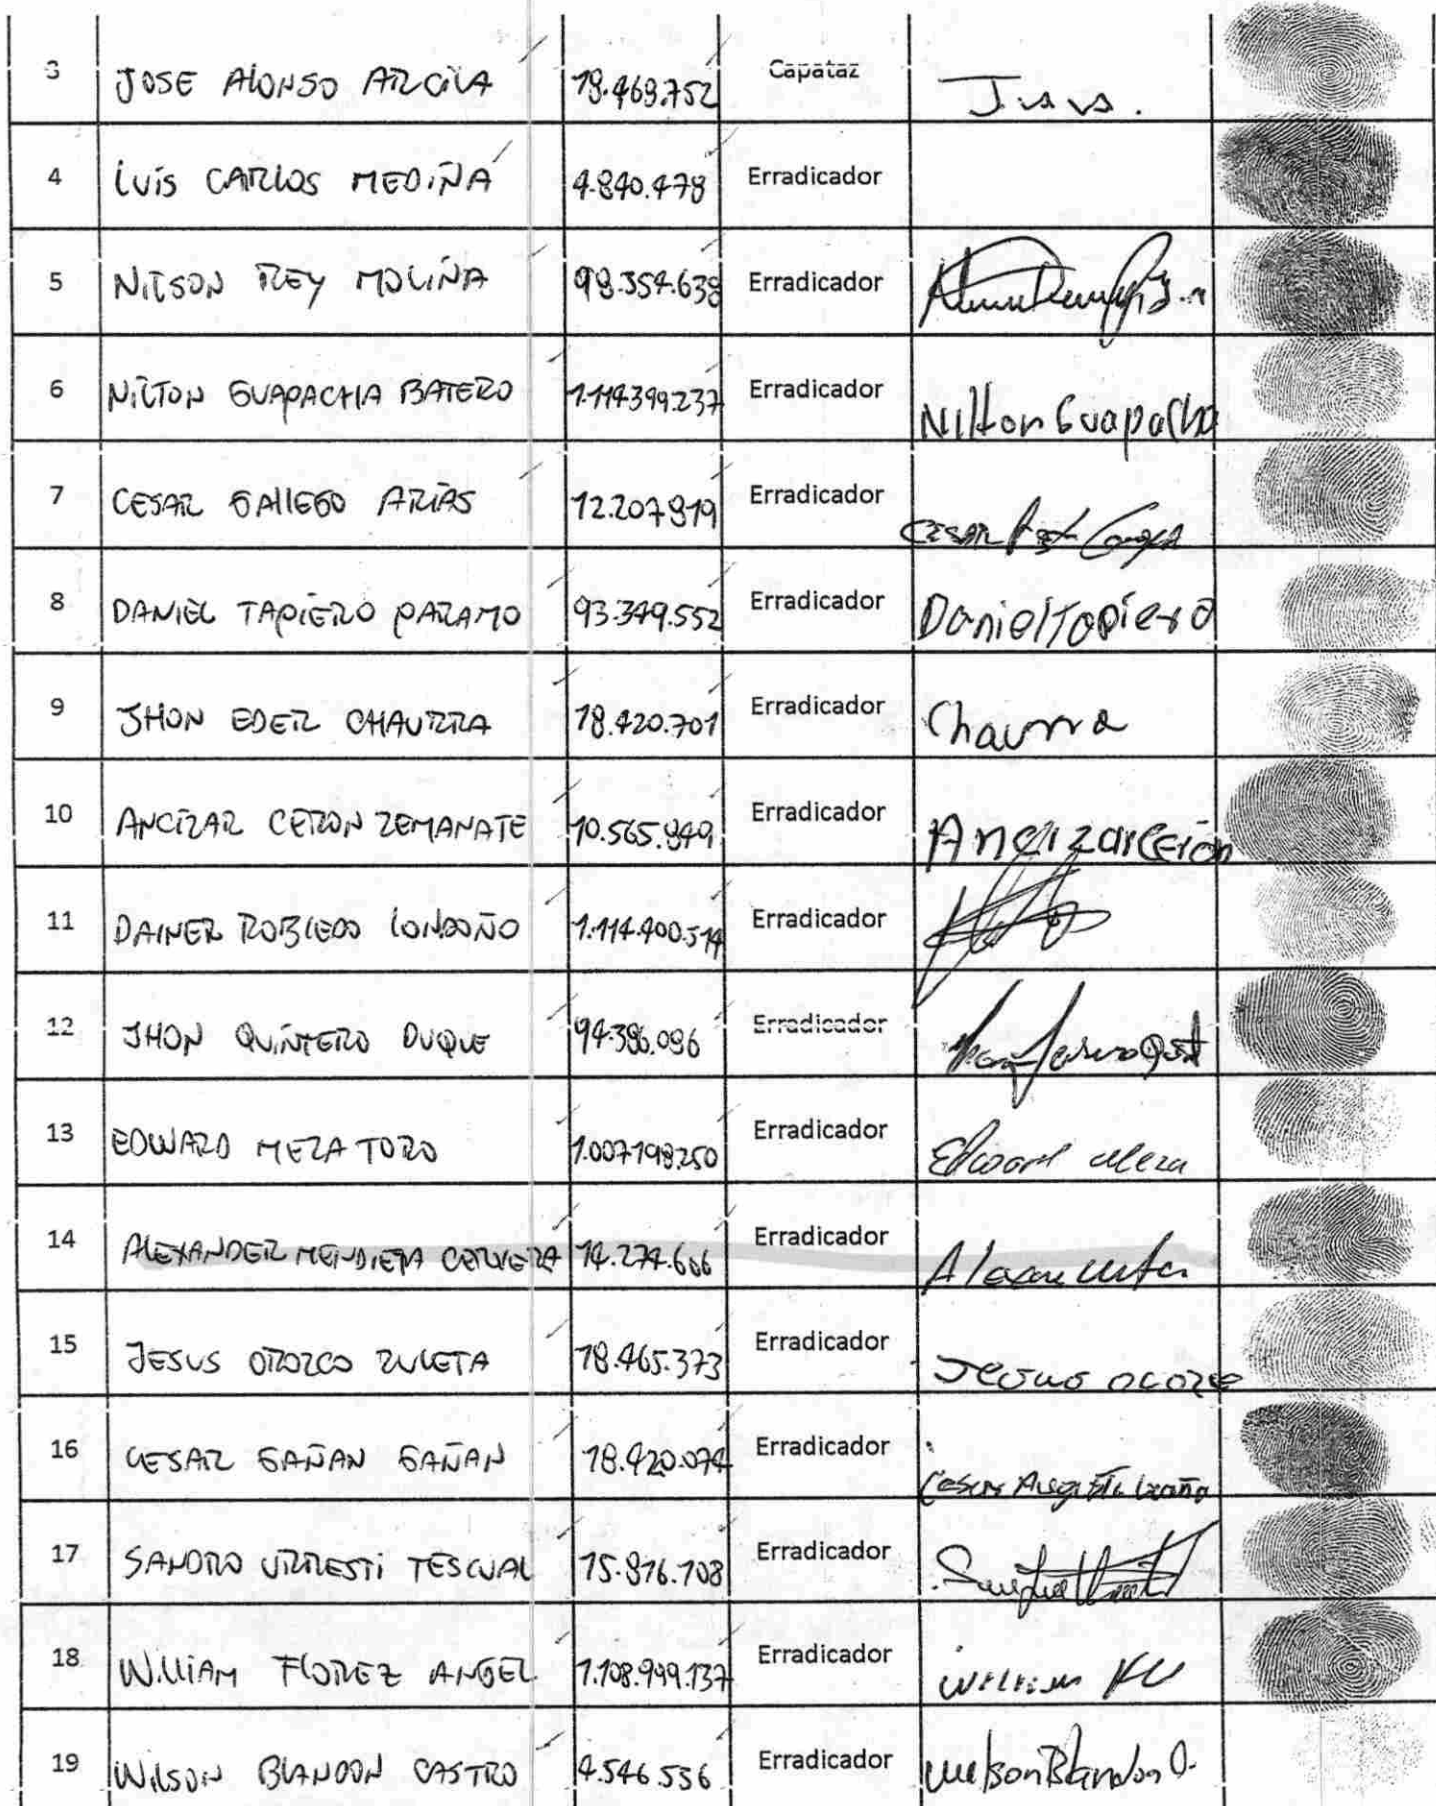 3 JOSE ALONSO ARCILA 18.469.752 Capataz
4 LUIS CARLOS MEDIÑA 4.840.478 Erradicador
5 NILSON REY MOLIÑA 98.354.638 Erradicador
6 NILTON GUAPACHA BATERO 1.114.399.237 Erradicador Nilton Guapacha
7 CESAR GALLEGO ARIAS 12.207.819 Erradicador CESAR
8 DANIEL TAPIERO PARAMO 93.349.552 Erradicador Daniel Tapiero
9 JHON EDER CHAURRA 18.420.701 Erradicador Chaurra
10 ANCIZAR CERON ZEMANATE 10.565.849 Erradicador Ancizar Ceron
11 DAINER ROBLEDO LONDOÑO 1.114.400.514 Erradicador
12 JHON QUINTERO DUQUE 94.386.086 Erradicador
13 EDWARD MEZA TORO 1.007.198.250 Erradicador Edwart Meza
14 ALEXANDER MENDIETA CERVERA 14.274.666 Erradicador
15 JESUS OROZCO ZULETA 18.465.373 Erradicador Jesus
16 CESAR GAÑAN GAÑAN 18.420.074 Erradicador Cesar Augusto
17 SANDRO URRESTI TESCUAL 15.816.108 Erradicador
18 WILLIAM FLOREZ ANGEL 1.108.999.137 Erradicador William
19 WILSON BLANDON CASTRO 4.546.556 Erradicador Wilson Blandon C.